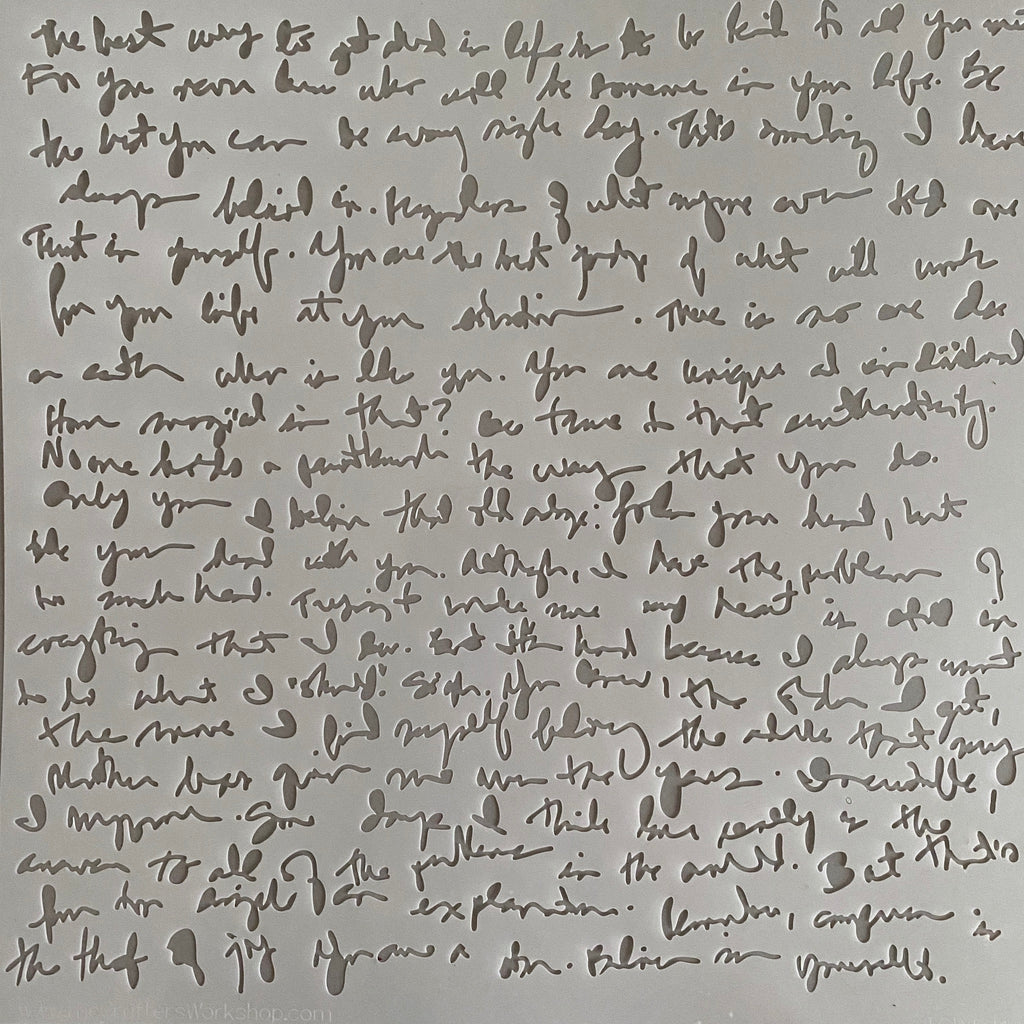 The best way to get ahead in life is to be kind to all you
For you never know who will be someone in your life. Be
the best you can be every single day. That's something I have
always believed in. Regardless of what anyone ever told me
That is yourself. You are the best judge of what will work
for you life at your . There is no one else
on earth who is like you. You are unique
How magical is that? be true to that authenticity.
No one holds a paintbrush the way that you do.
Only you I believe that old adage: follow your heart, but
take your head with you. Although, I have the problem of
too much head. Trying to make sure my heart is also in
everything that I do. But it's hard because I always want
to do what I "should". Sigh. You know, the I get,
the more I find myself the advice that my
Mother has given me over the years. Incredible,
I suppose. Some days I think love really is the
answer to all of the problems in the world. But that's
far too simple of an explanation. Remember, comparison is
the thief of joy. You are a star. Believe in yourself.